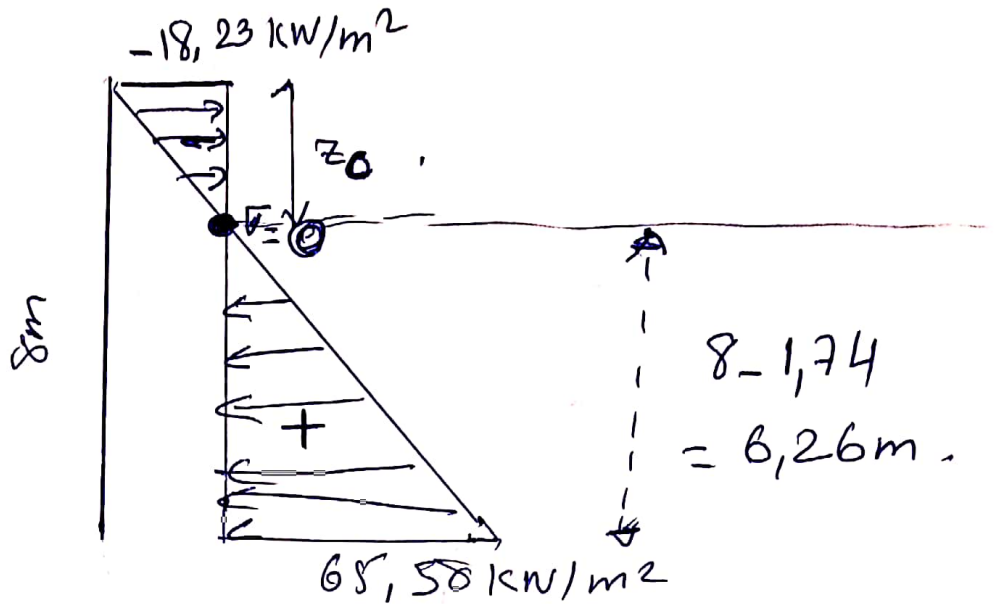 -18,23 KN/m²
z₀
σ=0
8m
8-1,74
= 6,26m.
+
65,58 KN/m2